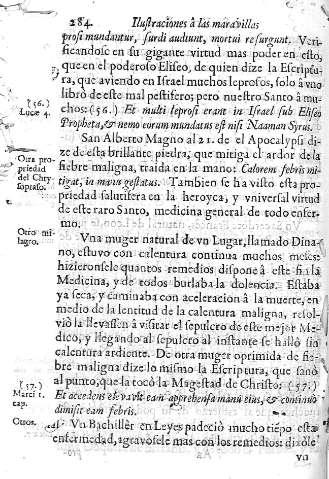 284 Ilustraciones à las marauillas
prosi mundantur, surdi audiunt, mortui resurgunt. Veri-
ficandose en su gigante virtud mas poder en esto,
que en el poderoso Eliseo, de quien dize la Escriptu-
ra, que aviendo en Israel muchos leprosos, solo à vno
librò de este mal pestifero; pero nuestro Santo à mu-
(56.)
Lucæ 4.
chos: (56.) Et multi leprosi erant in Israel sub Eliseo
Propheta, & nemo eorum mundatus est nisi Naaman Syrus.
San Alberto Magno al 21. de el Apocalypsi di-
Otra pro-
priedad
del Chry-
sopraso.
ze de esta brillante piedra, que mitiga el ardor de la
fiebre maligna, traida en la mano: Calorem febris mi-
tigat, in manu gestatus. Tambien se ha visto esta pro-
priedad salutifera en la heroyca, y vniversal virtud
de este raro Santo, medicina general de todo enfer-
mo.
Otro mi-
lagro.
Vna muger natural de vn Lugar, llamado Dina-
no, estuvo con calentura continua muchos meses:
hizieronsele quantos remedios dispone à este fin la
Medicina, y de todos burlaba la dolencia. Estaba
ya seca, y caminaba con aceleracion à la muerte, en
medio de la lentitud de la calentura maligna, resol-
viò la llevassen à visitar el sepulcro de este mejor Me-
dico, y llegando al sepulcro al instante se hallò sin
calentura ardiente. De otra muger oprimida de fie-
bre maligna dize lo mismo la Escriptura, que sanò
al punto, que la tocò la Magestad de Christo: (57.)
(57.)
Marci 1.
cap.
Et accedens elevavit eam apprehensa manu eius, & continuò
dimisit eam febris.
Otros.
Vn Bachillèr en Leyes padeciò mucho tiẽpo esta
enfermedad, agravosele mas con los remedios: dixole
vn